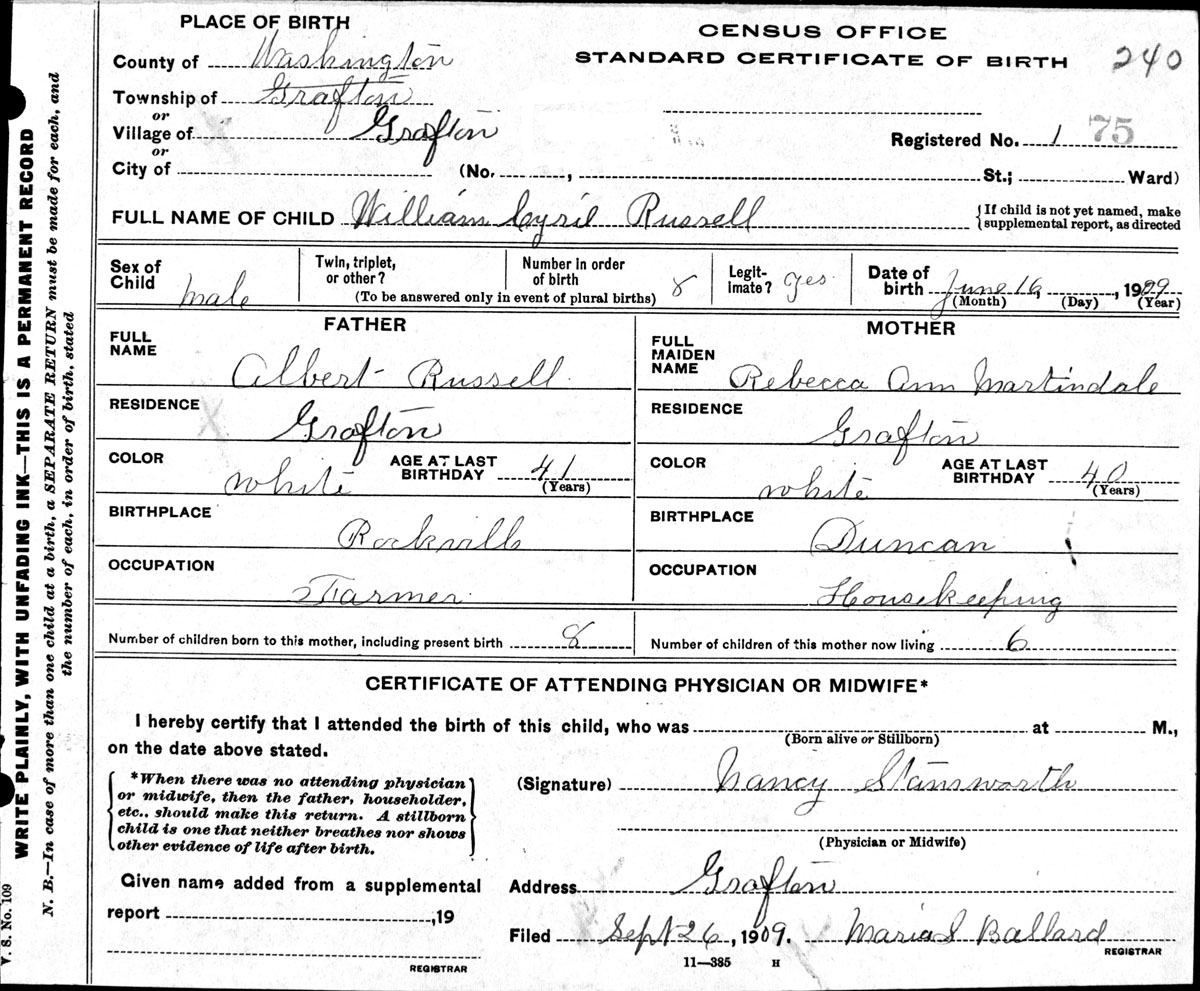 PLACE OF BIRTH
County of Washington
Township of Grafton
or
Village of Grafton
or
City of
CENSUS OFFICE
STANDARD CERTIFICATE OF BIRTH 240
Registered No. 1 75
(No. , St.; Ward)
FULL NAME OF CHILD William Cyril Russell
{If child is not yet named, make
supplemental report, as directed
Sex of
Child male
Twin, triplet,
or other?
Number in order
of birth 8
(To be answered only in event of plural births)
Legit-
imate? yes
Date of
birth June 16, , 1909
(Month) (Day) (Year)
FATHER
FULL
NAME
Albert Russell
RESIDENCE
Grafton
COLOR
white
AGE AT LAST
BIRTHDAY 41
(Years)
BIRTHPLACE
Rockville
OCCUPATION
Farmer
Number of children born to this mother, including present birth 8
MOTHER
FULL
MAIDEN
NAME
Rebecca Ann Martindale
RESIDENCE
Grafton
COLOR
white
AGE AT LAST
BIRTHDAY 40
(Years)
BIRTHPLACE
Duncan
OCCUPATION
Housekeeping
Number of children of this mother now living 6
CERTIFICATE OF ATTENDING PHYSICIAN OR MIDWIFE*
I hereby certify that I attended the birth of this child, who was at M.,
(Born alive or Stillborn)
on the date above stated.
{*When there was no attending physician
or midwife, then the father, householder,
etc.. should make this return. A stillborn
child is one that neither breathes nor shows
other evidence of life after birth.}
(Signature) Nancy Stanworth
(Physician or Midwife)
Given name added from a supplemental
report ,19
REGISTRAR
Address Grafton
Filed Sept 26, 1909. Maria S Ballard
REGISTRAR
11—385 H
WRITE PLAINLY, WITH UNFADING INK—THIS IS A PERMANENT RECORD
N. B.—In case of more than one child at a birth, a SEPARATE RETURN must be made for each, and
the number of each, in order of birth, stated
V. S. No. 109